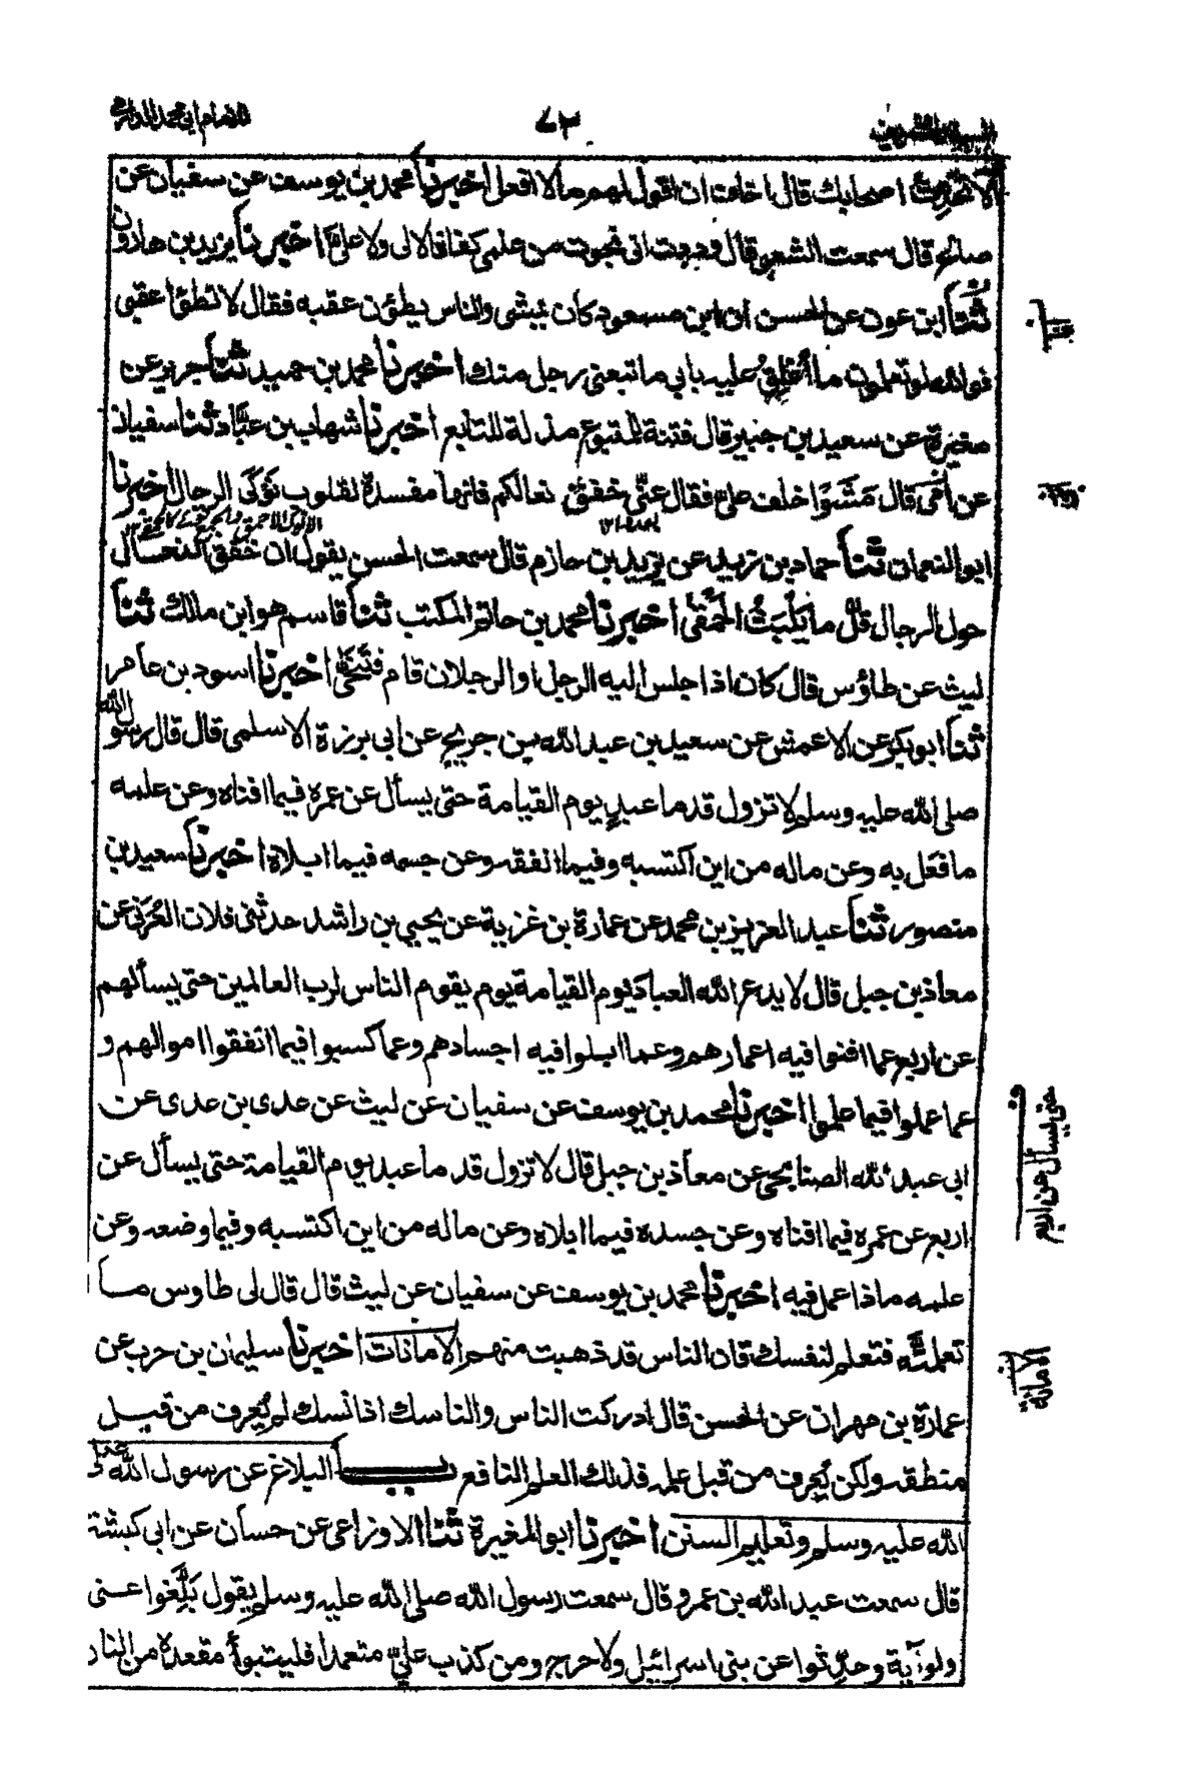 للامام ابي محمد الدارمي
٧٣
الا تحدث اصحابك قال اخاف ان اقول لهم ما لا افعل اخبرنا محمد بن يوسف عن سفيان عن
صالح قال سمعت الشعبي قال وددت اني نجوت من علمي كفافا لا لي ولا عليّ اخبرنا يزيد بن هارون
ثنا ابن عون عن الحسن ان ابن مسعود كان يمشي والناس يطؤن عقبه فقال لا تطؤا عقبي
فوالله لو تعلمون ما أغلِقُ عليه بابي ما تبعني رجل منكم اخبرنا محمد بن حميد ثنا جرير عن
مغيرة عن سعيد بن جبير قال فتنة للمتبوع مذلة للتابع اخبرنا شهاب بن عبّاد ثنا سفيان
عن أمي قال مَشَوا خلف علي فقال عنّي خفق نعالكم فانها مفسدة لقلوب نَوْكَى الرجال اخبرنا
ابو النعمان ثنا حماد بن زيد عن يزيد بن حازم قال سمعت الحسن يقول ان خفق النعال
حول الرجال قلّ ما يُلَبِّثُ الحَمْقى اخبرنا محمد بن حاتم المكتب ثنا قاسم هو ابن مالك ثنا
ليث عن طاؤس قال كان اذا جلس اليه الرجل او الرجلان قام فتنحّى اخبرنا اسود بن عامر
ثنا ابو بكر عن الاعمش عن سعيد بن عبد الله بن جريج عن ابي برزة الاسلمي قال قال رسول الله
صلى الله عليه وسلم لا تزول قدما عبدٍ يوم القيامة حتى يسأل عن عمره فيما افناه وعن علمه
ما فعل به وعن ماله من اين اكتسبه وفيما انفقه وعن جسمه فيما ابلاه اخبرنا سعيد بن
منصور ثنا عبد العزيز بن محمد عن عمارة بن غزية عن يحيي بن راشد حدثني فلان العُرَني عن
معاذ بن جبل قال لا يدع الله العباد يوم القيامة يوم يقوم الناس لرب العالمين حتى يسألهم
عن اربع عما افنوا فيه اعمارهم وعما ابلوا فيه اجسادهم وعما كسبوا فيما انفقوا اموالهم و
عما عملوا فيما علموا اخبرنا محمد بن يوسف عن سفيان عن ليث عن عدي بن عدي عن
ابي عبد الله الصنابحي عن معاذ بن جبل قال لا تزول قدما عبد يوم القيامة حتى يسأل عن
اربع عن عمره فيما افناه وعن جسده فيما ابلاه وعن ماله من اين اكتسبه وفيما وضعه وعن
علمه ماذا عمل فيه اخبرنا محمد بن يوسف عن سفيان عن ليث قال قال لي طاوس ما
تعلمتَه فتعلم لنفسك فان الناس قد ذهبت منهم الامانات اخبرنا سليمان بن حرب عن
عمارة بن مهران عن الحسن قال ادركت الناس والناسك اذا نسك لم يُعرف من قبل
منطقه ولكن يُعرف من قبل علمه فذلك العلم النافع باب البلاغ عن رسول الله صلى
الله عليه وسلم وتعليم السنن اخبرنا ابو المغيرة ثنا الاوزاعي عن حسان عن ابي كبشة
قال سمعت عبد الله بن عمرو قال سمعت رسول الله صلى الله عليه وسلم يقول بَلِّغوا عني
ولو آية وحدِّثوا عن بني اسرائيل ولا حرج ومن كذب عليّ متعمدا فليتبوأ مقعده من النار
حتى يسأل عن اربع
الامانة